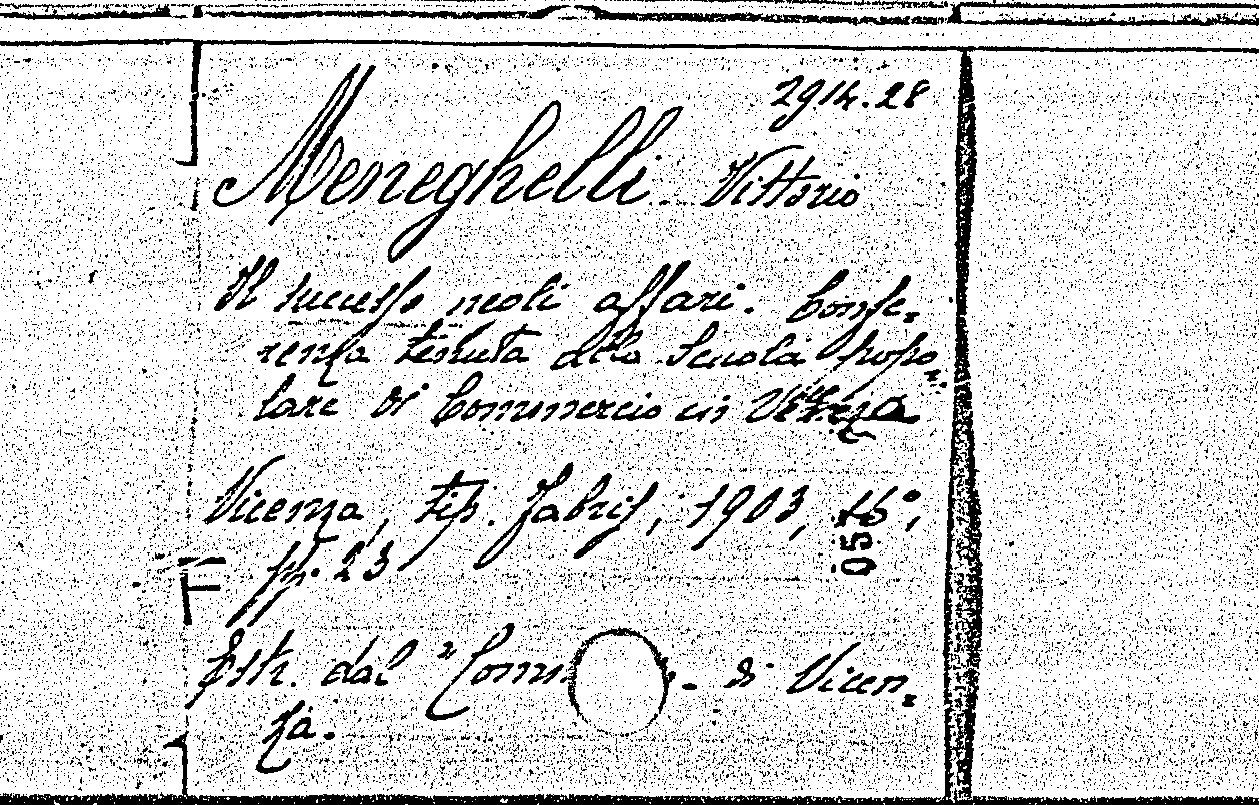 2914.28
Meneghelli Vittorio
Il successo negli affari. Confe=
renza tenuta alla Scuola popo=
lare di Commercio in
Vicenza, tip. Fabris, 1903, 16°,
pp. 23
Estr. dal "Comm di Vicen=
za.